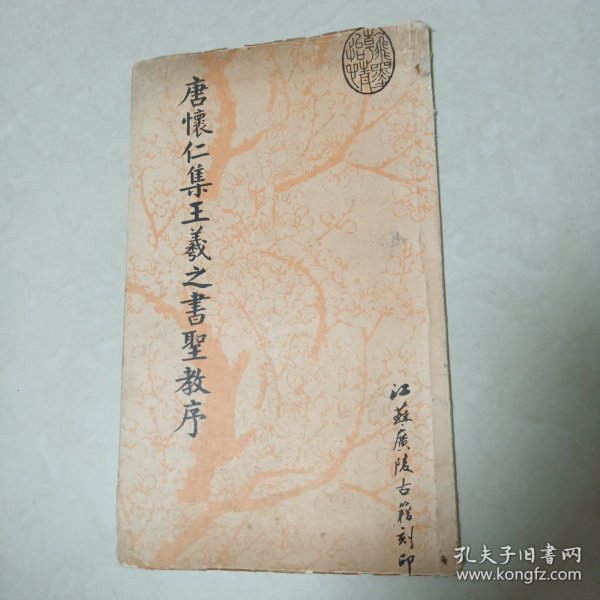 唐懷仁集王羲之書聖教序
江蘇廣陵古籍刻印
孔夫子旧书网
www.kongfz.com